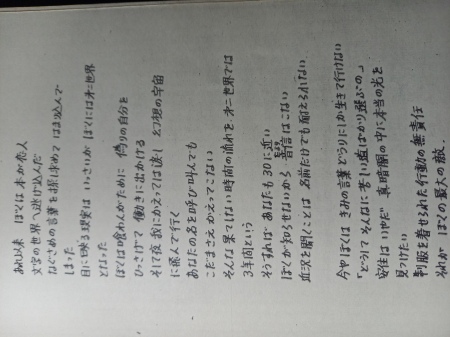 あれ以来 ぼくは本が恋人
文字の世界へ逃げ込んだ
なぐさめの言葉を探し求めて はまり込んで
しまった
目に映る現実は いっさいが ぼくには第二世界
となった
ぼくは喰わんがために 偽りの自分を
ひっさげて 働きに出かける
そして夜 家にかえっては 淋し 幻想の宇宙
に飛んで行く
あなたの名を呼び叫んでも
こだまさえ かえってこない
そんな果てしない時間の流れを 第二世界では
3年間という
そうすれば あなたも30に近い
ぼくが知らせないから 音信はこない
近況を聞くことは 名前だけでも耐えられない
今やぼくは きみの言葉どうりにしか生きて行けない
「どうして そんなに苦しい道ばかり選ぶの」
安住はいやだ 真暗闇の中に本当の光を
見つけたい
制服を着せられた行動の無責任
それが ぼくの最大の敵